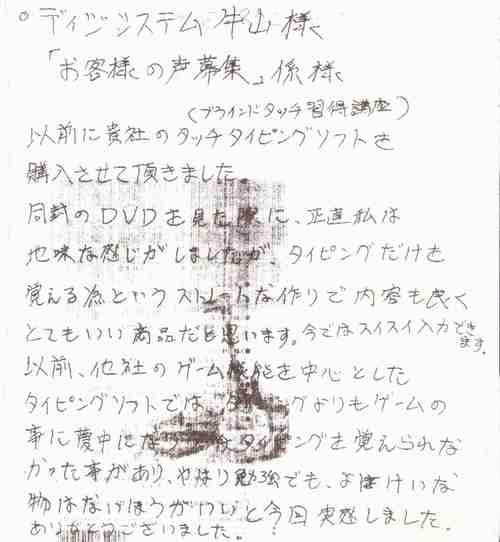 ○ディジシステム 牛山様
「お客様の声募集」係様
（ブラインドタッチ習得講座）
以前に貴社のタッチタイピングソフトを
購入させて頂きました。
同封のDVDを見た際に、正直私は
地味な感じがしましたが、タイピングだけを
覚える為というストレートな作りで内容も良く
とてもいい商品だと思います。今ではスイスイ入力できます。
以前、他社のゲーム機能を中心とした
タイピングソフトでは、タイピングよりもゲームの
事に夢中になり タイピングを覚えられな
かった事があり、やはり勉強でも、よけいな
物はないほうがいいと今回実感しました。
ありがとうございました。